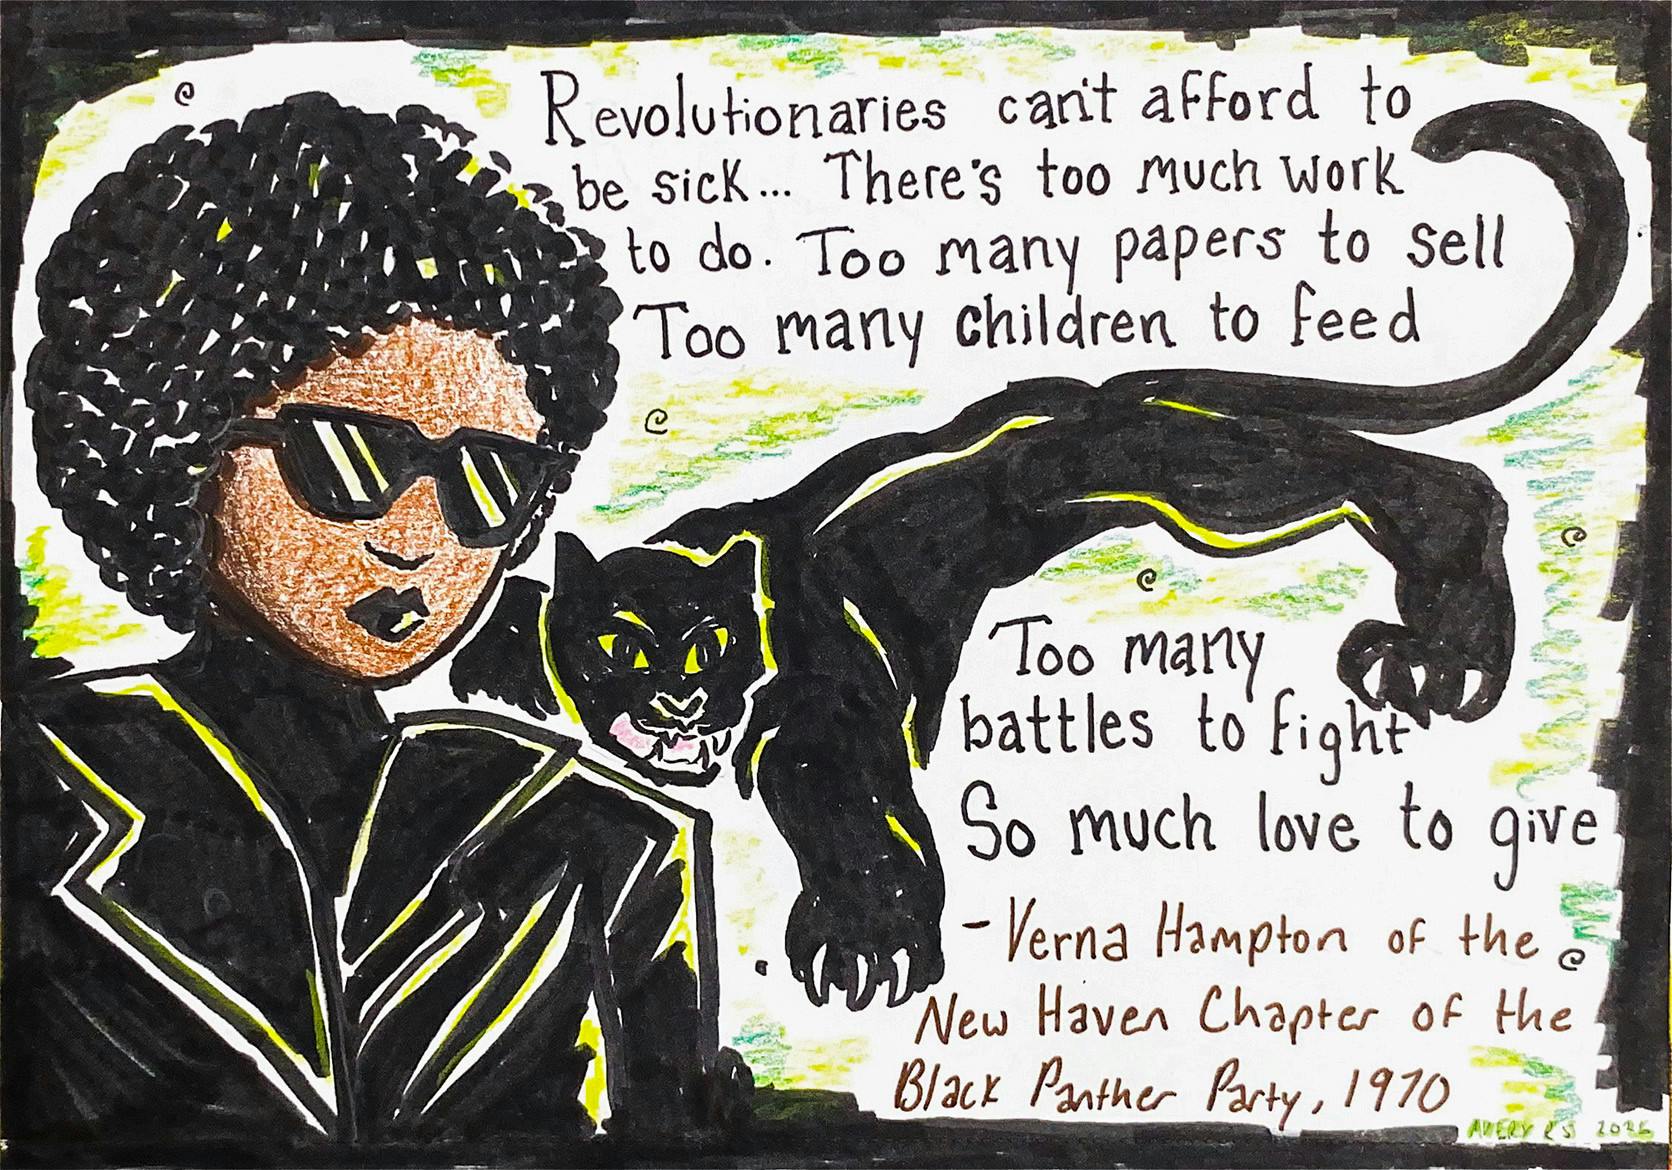 Revolutionaries can't afford to
be sick... There's too much work
to do. Too many papers to sell
Too many children to feed
Too many
battles to fight
So much love to give
- Verna Hampton of the
New Haven Chapter of the
Black Panther Party, 1970
AVERY R'S 2025